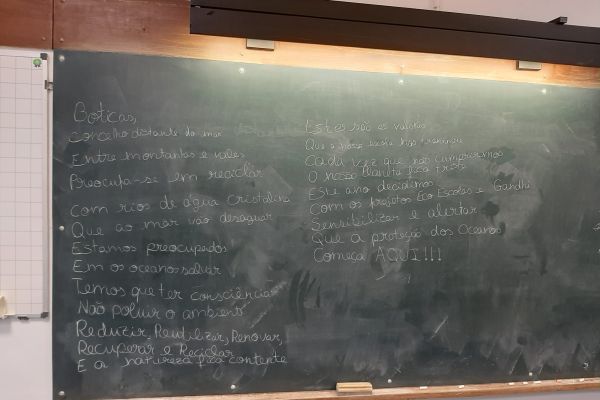 Boticas,
Concelho distante do mar
Entre montanhas e vales
Preocupa-se em reciclar
Com rios de água cristalina
Que ao mar vão desaguar
Estamos preocupados
Em os oceanos salvar
Temos que ter consciência
Não poluir o ambiente
Reduzir, Reutilizar, Renovar,
Recuperar e Reciclar
E a natureza fica contente
Estes são os valores
Que a nossa escola nos transmite
Cada vez que não cumprirmos
O nosso planeta fica triste
Este ano decidimos
Com os projetos Eco Escolas e Gandhi
Sensibilizar e alertar
Que a proteção dos Oceanos
Começa AQUI!!!